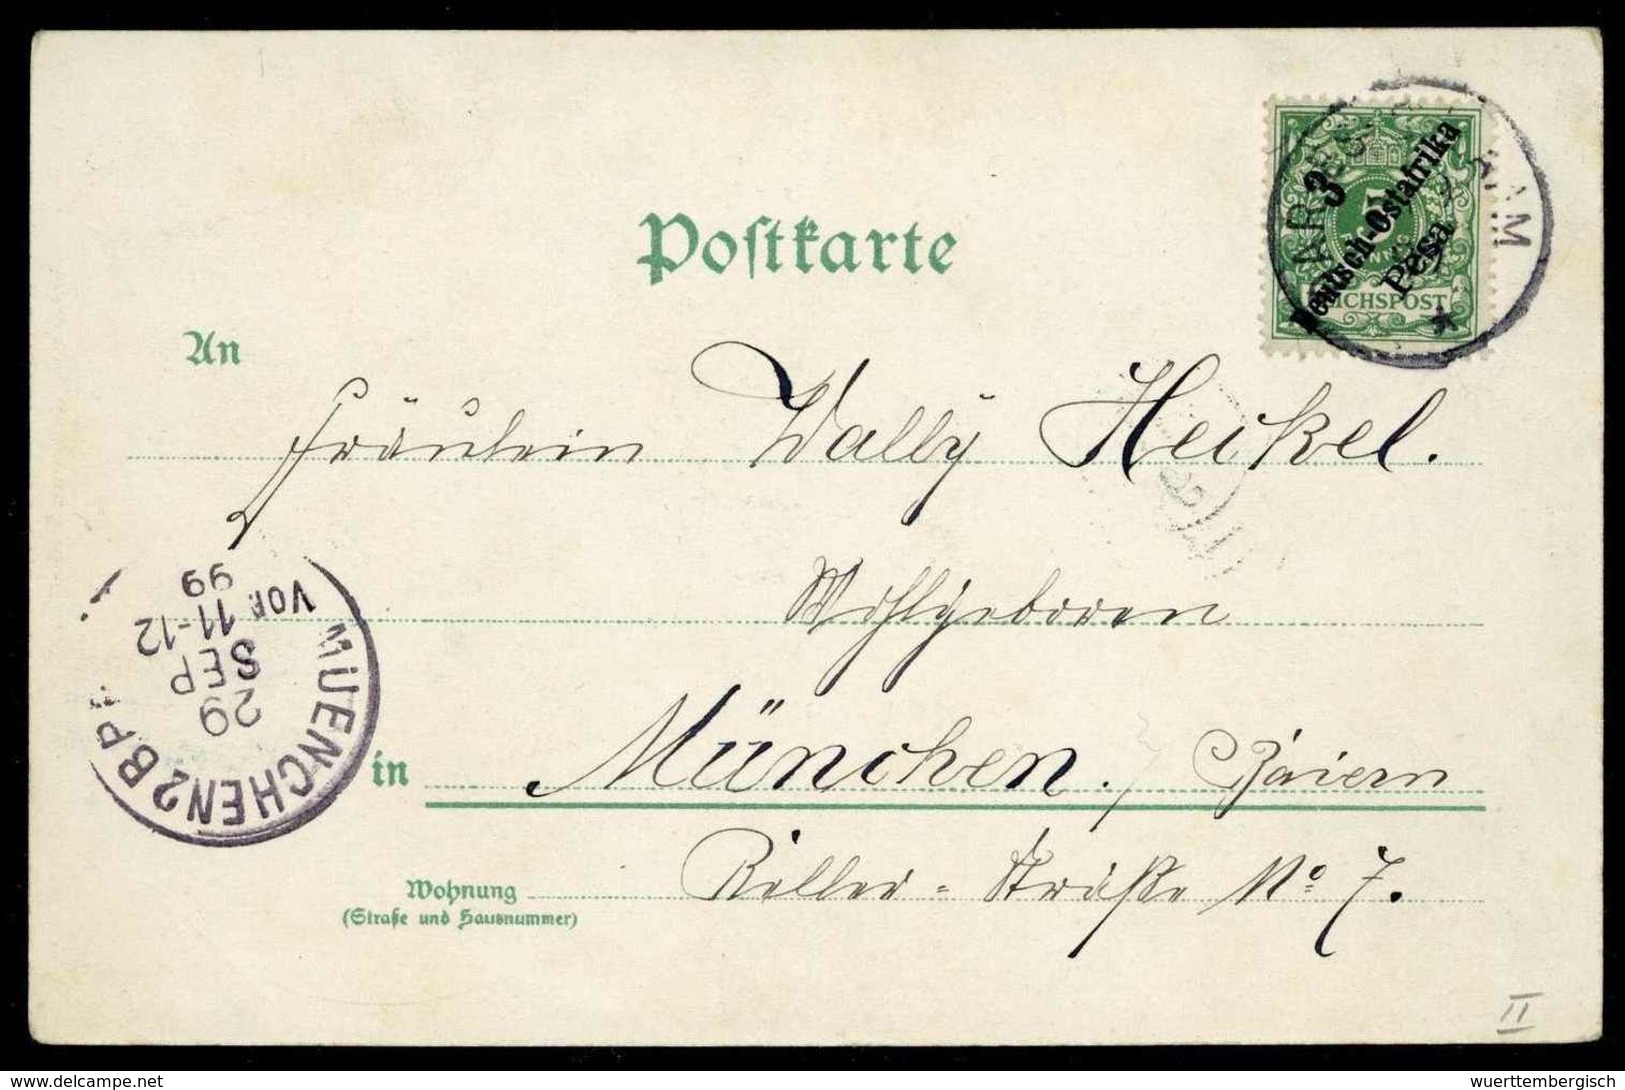 Postkarte
DAR-ES-SALAAM
3
Deutsch-Ostafrika
Pesa
5
REICHSPOST
An
Fräulein Wally Heikel.
Wohlgeboren
in München. Baiern
Wohnung
(Straße und Hausnummer)
Straße No 7.
MUENCHEN 2 B.P.
29
SEP
VOR 11-12
99
II
delcampe.net
wuerttembergisch